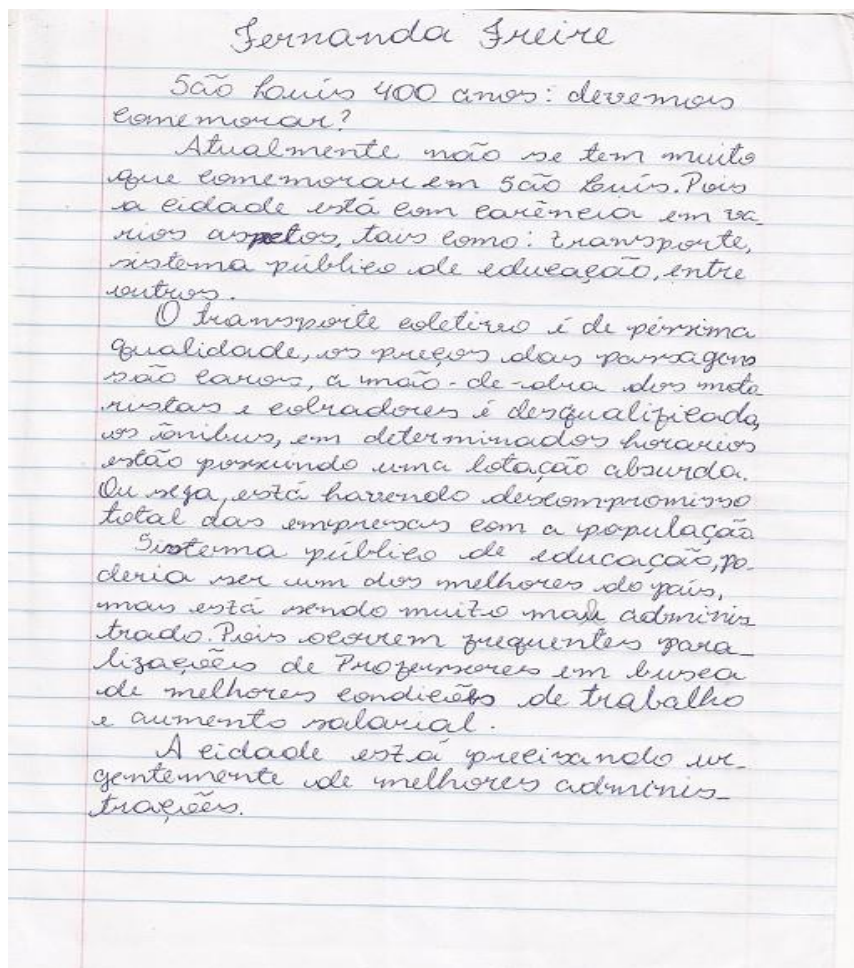 Fernanda Freire
São Luís 400 anos: devemos
comemorar?
Atualmente não se tem muito
que comemorar em São Luís. Pois
a cidade está com carência em va-
rios aspetos, tais como: transporte,
sistema público de educação, entre
outros.
O transporte coletivo é de péssima
qualidade, os preços das passagens
são caros, a mão-de-obra dos moto
ristas e cobradores é desqualificada,
os ônibus, em determinados horarios
estão possuindo uma lotação absurda.
Ou seja, está havendo descompromisso
total das empresas com a população
Sistema público de educação, po-
deria ser um dos melhores do país,
mas está sendo muito mau adminis
trado. Pois ocorrem frequentes para-
lizações de Professores em busca
de melhores condições de trabalho
e aumento salarial.
A cidade está precisando ur-
gentemente de melhores adminis-
trações.